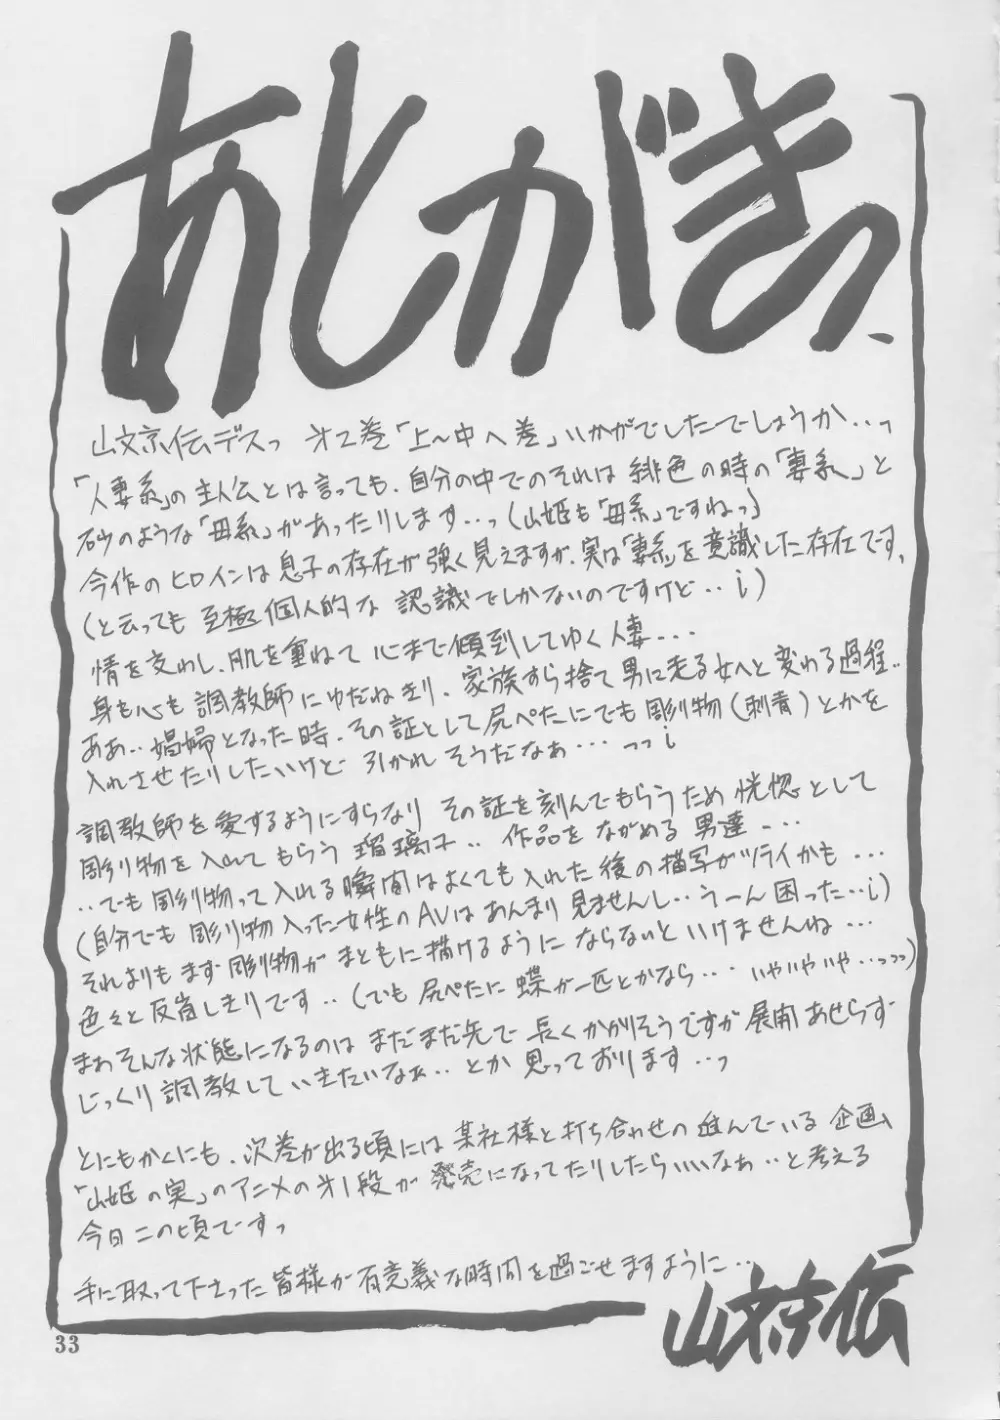 あとがきっ、
山文京伝デスっ 才2巻「上〜中へ巻」いかがでしたでしょうか…っ
「人妻系」の主人公とは言っても、自分の中でのそれは緋色の時の「妻系」と
砂のような「母系」があったりします…っ(山姫も「母系」ですねっ)
今作のヒロインは息子の存在が強く見えますが、実は「妻系」を意識した存在です、
(と云っても至極個人的な認識でしかないのですけど…i)
情を交わし、肌を重ねて心まで傾倒してゆく人妻...
身も心も調教師にゆだねきり、家族すら捨て男に走る女へと変わる過程..
ああ..娼婦となった時、その証として尻ぺたにでも彫り物(刺青)とかを
入れさせたりしたいけど 引かれそうだなぁ…っっi
調教師を愛するようにすらなり その証を刻んでもらうため恍惚として
彫り物を入れてもらう瑠璃子.. 作品をながめる男達...
..でも彫り物って入れる瞬間はよくても入れた後の描写がツライかも...
(自分でも彫り物入った女性のAVはあんまり見ませんし..うーん困った…i)
それよりもまず彫り物がまともに描けるようにならないといけませんね...
色々と反省しきりです..(でも尻ぺたに蝶が一匹とかなら... いやいやいや..っっっ)
まぁそんな状態になるのはまだまだ先で長くかかりそうですが展開あせらず
じっくり調教していきたいなぁ..とか思っております…っ
とにもかくにも、次巻が出る頃には某社様と打ち合わせの進んでいる企画、
「山姫の実」のアニメの才1段が発売になってたりしたらいいなぁ..と考える
今日この頃ですっ
手に取って下さった皆様が有意義な時間を過ごせますように...
山文京伝
33